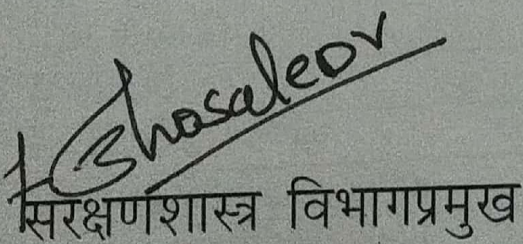 Bhosaleor
संरक्षणशास्त्र विभागप्रमुख